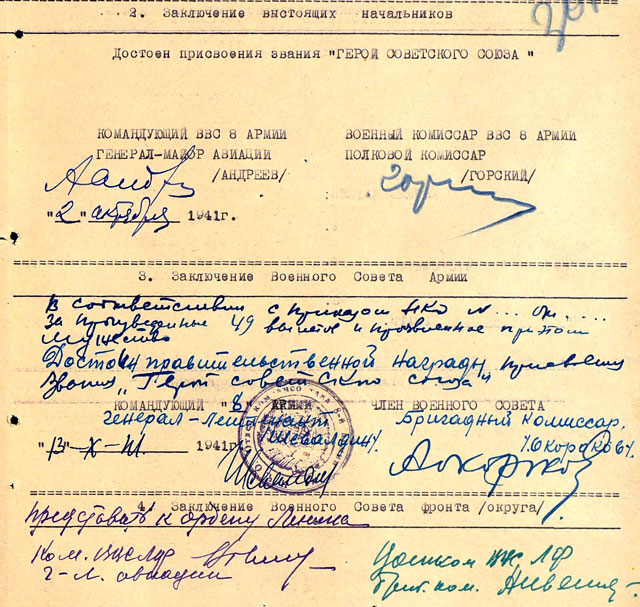 2. Заключение вышестоящих начальников
Достоен присвоения звания "ГЕРОЙ СОВЕТСКОГО СОЮЗА"
КОМАНДУЮЩИЙ ВВС 8 АРМИИ
ГЕНЕРАЛ-МАЙОР АВИАЦИИ
/АНДРЕЕВ/
"2" октября 1941г.
ВОЕННЫЙ КОМИССАР ВВС 8 АРМИИ
ПОЛКОВОЙ КОМИССАР
/ГОРСКИЙ/
3. Заключение Военного Совета Армии
В соответствии с приказом НКО № ... от ....
За произведенные 49 вылетов и проявленное при этом
мужество
Достоин правительственной награды, присвоения
звания "Герой советского союза".
КОМАНДУЮЩИЙ "8" АРМИЕЙ
генерал-лейтенант
Шевалдин.
"13"-X- 1941г.
ЧЛЕН ВОЕННОГО СОВЕТА
Бригадный комиссар.
4. Заключение Военного Совета фронта /округа/
Представить к ордену Ленина
Ком. ВВС ЛФ
г-л. авиации
ЛФ